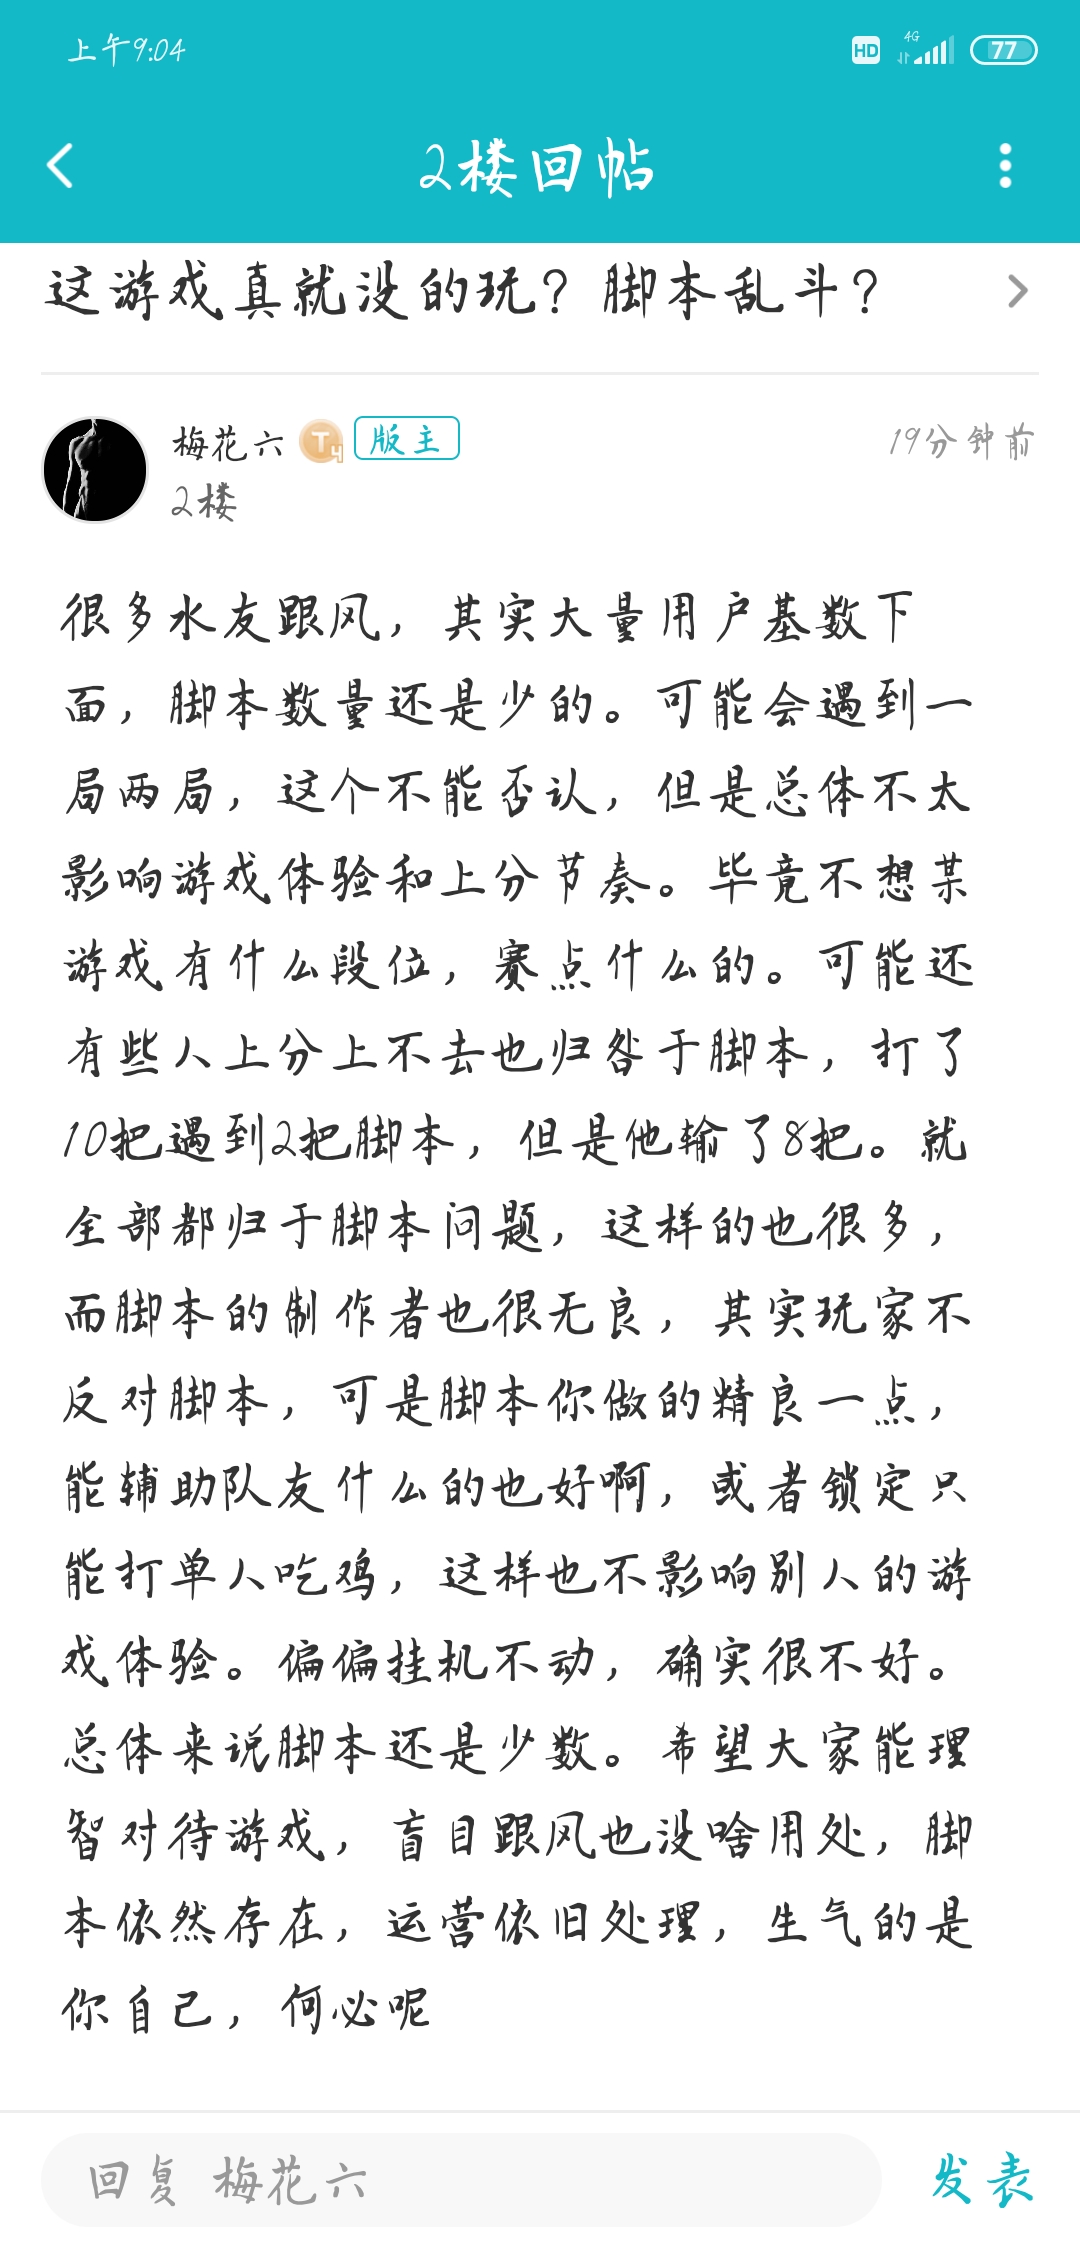 上午9:04
HD 4G 77
2楼回帖
这游戏真就没的玩？脚本乱斗？
梅花六 T4 版主 19分钟前
2楼
很多水友跟风，其实大量用户基数下
面，脚本数量还是少的。可能会遇到一
局两局，这个不能否认，但是总体不太
影响游戏体验和上分节奏。毕竟不想某
游戏有什么段位，赛点什么的。可能还
有些人上分上不去也归咎于脚本，打了
10把遇到2把脚本，但是他输了8把。就
全部都归于脚本问题，这样的也很多，
而脚本的制作者也很无良，其实玩家不
反对脚本，可是脚本你做的精良一点，
能辅助队友什么的也好啊，或者锁定只
能打单人吃鸡，这样也不影响别人的游
戏体验。偏偏挂机不动，确实很不好。
总体来说脚本还是少数。希望大家能理
智对待游戏，盲目跟风也没啥用处，脚
本依然存在，运营依旧处理，生气的是
你自己，何必呢
回复 梅花六 发表